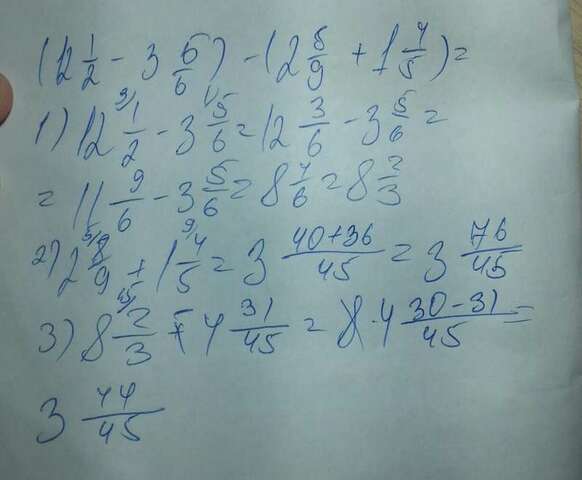 (12 1/2 - 3 5/6) - (2 8/9 + 1 4/5) =
1) 12 1/2 - 3 5/6 = 12 3/6 - 3 5/6 =
= 11 9/6 - 3 5/6 = 8 4/6 = 8 2/3
2) 2 8/9 + 1 4/5 = 3 40+36/45 = 3 76/45
3) 8 2/3 - 4 31/45 = 8-4 30-31/45 =
3 44/45